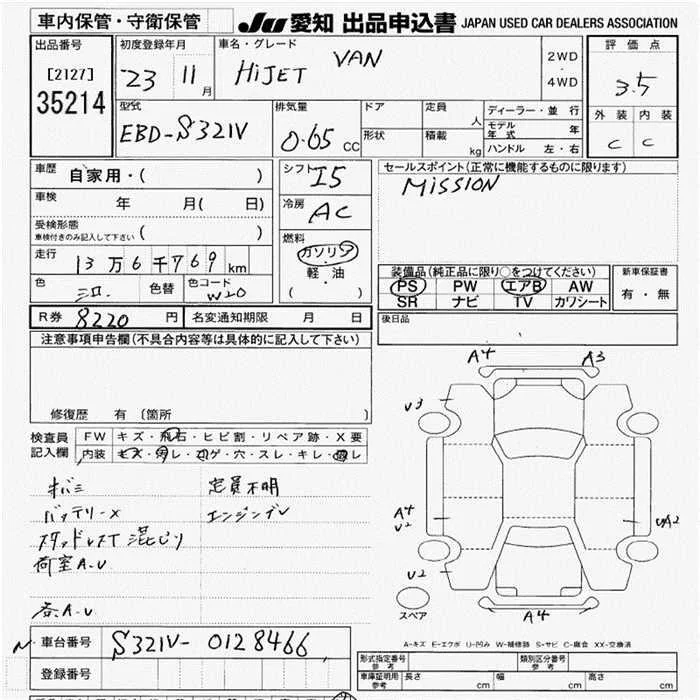 車内保管・守衛保管
JU 愛知 出品申込書 JAPAN USED CAR DEALERS ASSOCIATION
出品番号 初度登録年月 車名・グレード 評価点
[2127] 23 11月 HiJET VAN 2WD・4WD 3.5
35214
型式 排気量 ドア 定員 人 ディーラー・並行 外装 内装
EBD-S321V 0.65 CC 形状 積載 kg モデル年式 年 C C
ハンドル 左・右
車歴 自家用・( ) シフト I5 セールスポイント(正常に機能するものに限ります)
MiSSION
車検 年 月( 日) 冷房 AC
受検形態 ( )
車検付きのみ記入して下さい
燃料
走行 13万6千769km ガソリン
軽・油
( )
装備品(純正品に限り○をつけてください) 新車保証書
色 シロ. 色替 色コード W20 PS PW エアB AW 有・無
SR ナビ TV カワシート
R券 8220 円 名変通知期限 月 日 後日品
注意事項申告欄(不具合内容等は具体的に記入して下さい)
A4 A3
U3
修復歴 有 (箇所 )
検査員 FW キズ・飛石・ヒビ割・リペア跡・X要
記入欄 内装 キズ・汚レ・コゲ・穴・スレ・キレ・レ
定員不明
バッテリーX エンジン A4 U2 UA2
スタッドレスT 混じり
荷室A.U
U2
各A.U スペア A4
A-キズ E-エクボ U-凹み W-補修跡 S-サビ C-腐食 XX-交換済
N. 車台番号 S321V-0128466
形式指定番号 参考 類別区分番号 参考
登録番号 車庫証明用 参考 長さ cm 幅 cm 高さ cm